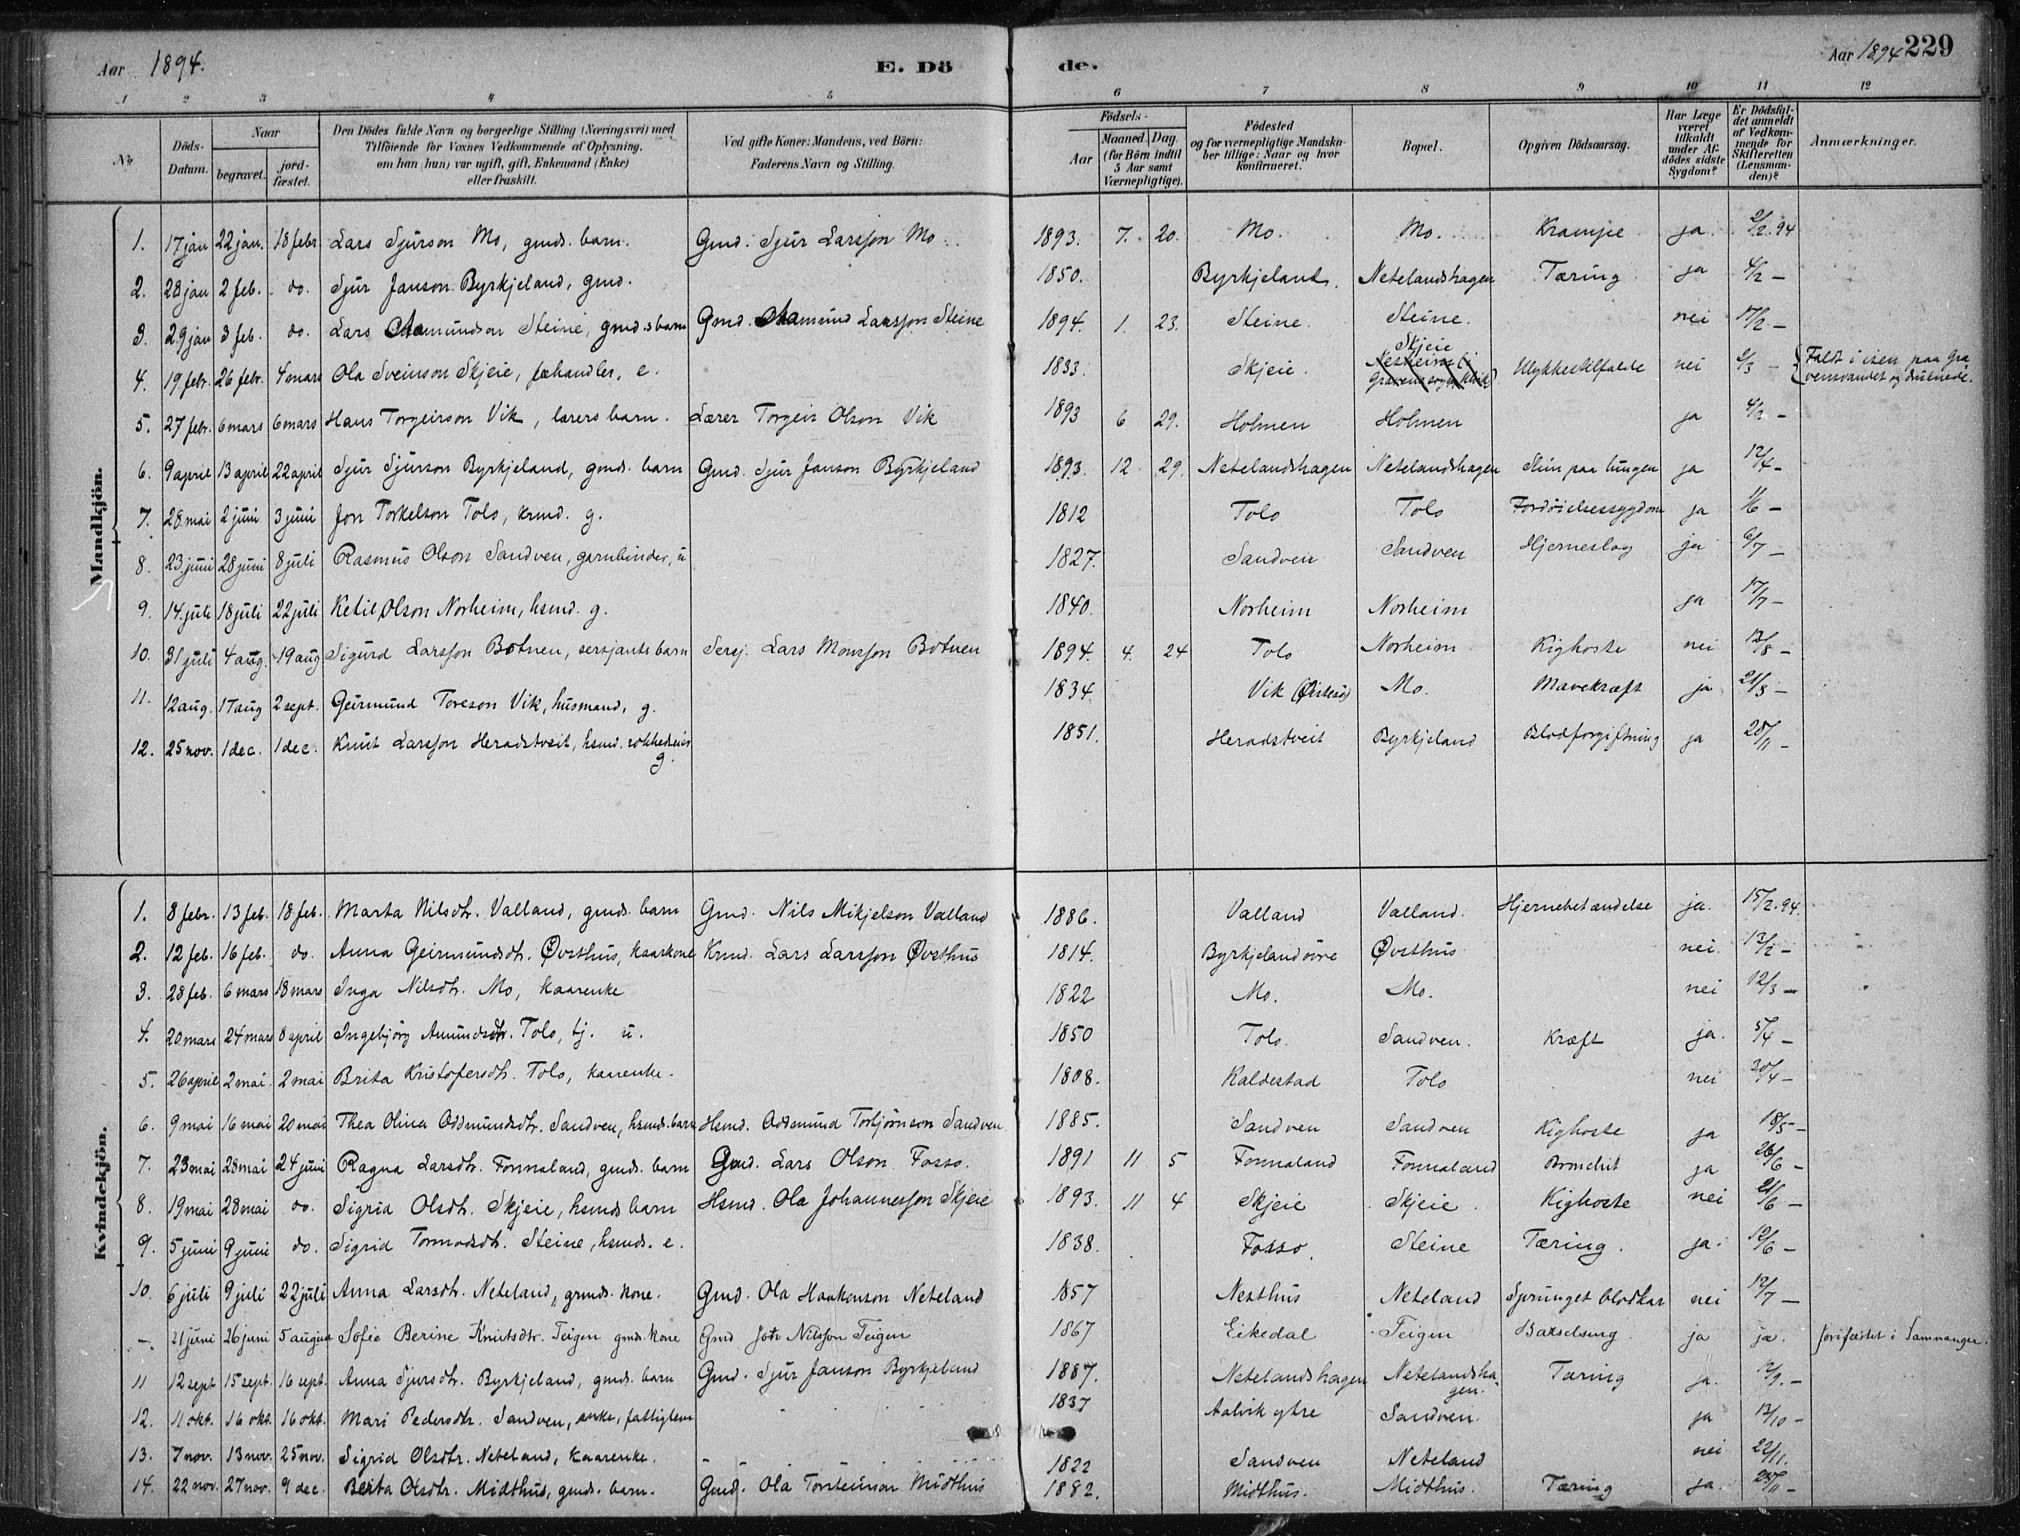 Aar 1894. E. Dö de. Aar 1894 229
1 2 3 4 5 6 7 8 9 10 11 12
No
Döds-Datum.
Naar
begravet.
jord-fæstet.
Den Dödes fulde Navn og borgerlige Stilling (Næringsvei) med
Tilföiende for Voxnes Vedkommende af Oplysning,
om han (hun) var ugift, gift, Enkemand (Enke)
eller fraskilt.
Ved gifte Koner: Mandens, ved Börn:
Faderens Navn og Stilling.
Födsels-
Aar
Maaned. Dag.
(for Börn indtil
5 Aar samt
Værnepligtige).
Födested
og for værnepligtige Mandska-
ber tillige: Naar og hvor
konfirmeret.
Bopæl.
Opgiven Dödsaarsag.
Har Læge
været
tilkaldt
under Af-
dödes sidste
Sygdom?
Er Dödsfal-
det anmeldt
af Vedkom-
mende for
Skifteretten
(Lensman-
den)?
Anmærkninger.
Mandkjön.
1. 17 jan 22 jan. 18 febr Lars Sjurson Mo, gmds. barn. Gmd. Sjur Larsson Mo 1893. 7. 20. Mo. Mo. Krampe ja. 2/2. 94
2. 28 jan 2 feb. do. Sjur Janson Byrkjeland, gmd. 1850. Byrkjeland. Netelandshagen Tæring ja 4/2 —
3. 29 jan 3 feb. do. Lars Aamundson Steine, gmds barn Gmd. Aamund Larsson Steine 1894. 1. 23. Steine. Steine. nei 17/2 —
4. 19. febr. 26 febr. 4 mars Ola Sveinson Skjeie, fæhandler, e. 1833. Skjeie. Skjeie Ulykkestilfælde nei 2/3 — Faldt i isen paa Gra
vensvandet og druknede.
5. 27 febr. 6 mars 6 mars Hans Torgeirson Vik, lærers barn. Lærer Torgeir Olson Vik 1893 6 29. Holmen Holmen ja 4/2 —
6. 9 april 13 april 22 april Sjur Sjurson Byrkjeland, gmds. barn Gmd. Sjur Janson Byrkjeland 1893. 12 29. Netelandshagen Netelandshagen Slim paa lungen ja 12/4 —
7. 28 mai 2 juni 3 juni Jon Torkelson Tolo, krmd. g. 1812 Tolo Tolo Fordøielsessygdom ja 1/6 —
8. 23 juni 28 juni 8 juli Rasmus Olson Sandven, garnbinder, u 1827. Sandven Sandven Hjerneslag ja 6/7 —
9. 14. juli 18 juli 22 juli Ketil Olson Norheim, hsmd. g. 1840. Norheim Norheim ja 17/7 —
10. 31 juli 4 aug. 19 aug Sigurd Larsson Botnen, sersjants barn Sersj. Lars Monsson Botnen 1894. 4. 24 Tolo Norheim Kighoste nei 13/8 —
11. 12 aug. 17 aug 2 sept. Geirmund Toreson Vik, husmand, g. 1834 Vik (Østesø) Mo. Mavekræft ja 21/8 —
12. 25 nov. 1 dec. 1 dec. Knut Larsson Heradstveit, hsmd. g. 1851. Heradstveit Byrkjeland Blodforgiftning ja 28/11 —
Kvindekjön.
1. 8 febr. 13 feb. 18 feb. Marta Nilsdtr. Valland, gmds. barn Gmd. Nils Mikjelson Valland 1886. Valland Valland. Hjernebetændelse ja. 15/2. 94.
2. 12 feb. 16 feb. do. Anna Geirmundsdtr. Øvsthus, kaarkone Krmd. Lars Larsson Øvsthus 1814. Byrkjeland øvre Øvsthus nei 13/2 —
3. 28 feb. 6 mars 18 mars Inga Nilsdtr. Mo, kaarenke 1822 Mo. Mo. nei 12/3 —
4. 20 mars 24 mars 8 april Ingebjörg Amundsdtr. Tolo, tj. u. 1850 Tolo. Sandven. Kræft ja. 5/4 —
5. 26 april 2 mai. 2 mai Brita Kristofersdtr. Tolo, kaarenke. 1808. Kaldestad Tolo nei 30/4 —
6. 9 mai 16 mai 20 mai Thea Olina Oddmundsdtr. Sandven, hsmds. barn Hsmd. Oddmund Torbjørnson Sandven 1885. Sandven Sandven Kighoste ja 18/5 —
7. 23 mai 28 mai 24 juni Ragna Larsdtr. Fonnaland, gmds. barn Gmd. Lars Olson Fosso. 1891 11 5 Fonnaland Fonnaland Bronchit ja 26/6 —
8. 19 mai 28 mai do. Sigrid Olsdtr. Skjeie, hsmds barn Hsmd. Ola Johannesson Skjeie 1893. 11 4 Skjeie Skjeie. Kighoste nei 21/6 —
9. 5 juni 9 juni do. Sigrid Tormodsdtr. Steine, hsmds. e. 1838. Fosso. Steine Tæring. ja. 12/6 —
10. 6 juli 9 juli 22 juli Anna Larsdtr. Neteland, gmds. kone. Gmd. Ola Haakonson Neteland 1857 Nesthus Neteland Sprunget blodkar nei 12/7 —
— 21 juni 26 juni 5 august Sofie Berine Knutsdtr. Teigen gmds. kone Gmd Nilsson Teigen 1867 Eikedal Teigen Barselseng ja ja. Jordfæstet i Samnanger.
11 12 sept 15 sept. 16 sept. Anna Sjursdtr. Byrkjeland, gmds. barn Gmd. Sjur Janson Byrkjeland 1887. Netelandshagen Netelandsha
gen. Tæring ja. 12/9. —
12. 11 okt. 16 okt. 16 okt. Mari Pedersdtr. Sandven, enke, fattiglem 1837 Aalvik ytre Sandven. ja 13/10 —
13. 7 nov. 13 nov. 25 nov. Sigrid Olsdtr. Neteland, kaarenke. 1822 Sandven Neteland nei 22/11.
14. 22 nov. 27 nov. 9 dec. Berta Olsdtr. Midthus, gmds. barn. Gmd. Ola Torsteinson Midthus 1882. Midthus. Midthus. Tæring ja. 28/11 —